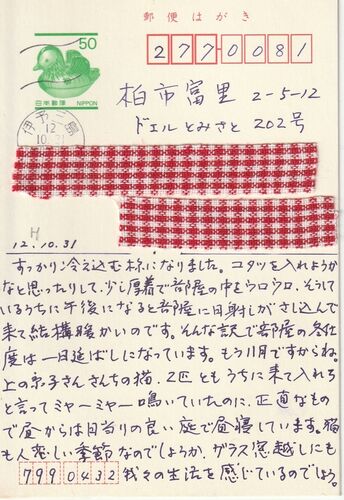 郵便はがき
50
日本郵便 NIPPON
2770081
柏市富里 2-5-12
ドエルとみさと 202号
伊予三島
12
10.31
H
12.10.31
すっかり冷え込む様になりました。コタツを入れようか
なと思ったりして、少し厚着で部屋の中をウロウロ、そうして
いるうちに午後になると部屋に日射しがさし込んで
来て結構暖かいのです。そんな訳で部屋の冬仕
度は一日延ばしになっています。もう11月ですからね。
上のお子さんちの猫、2匹ともうちに来て入れろ
と言ってミャーミャー鳴いていたのに、正直なもの
で昼からは日当りの良い庭で昼寝しています。猫
も人恋しい季節なのでしょうか、ガラス窓越しにも
我々の生活を感じているのでしょう。
7990432